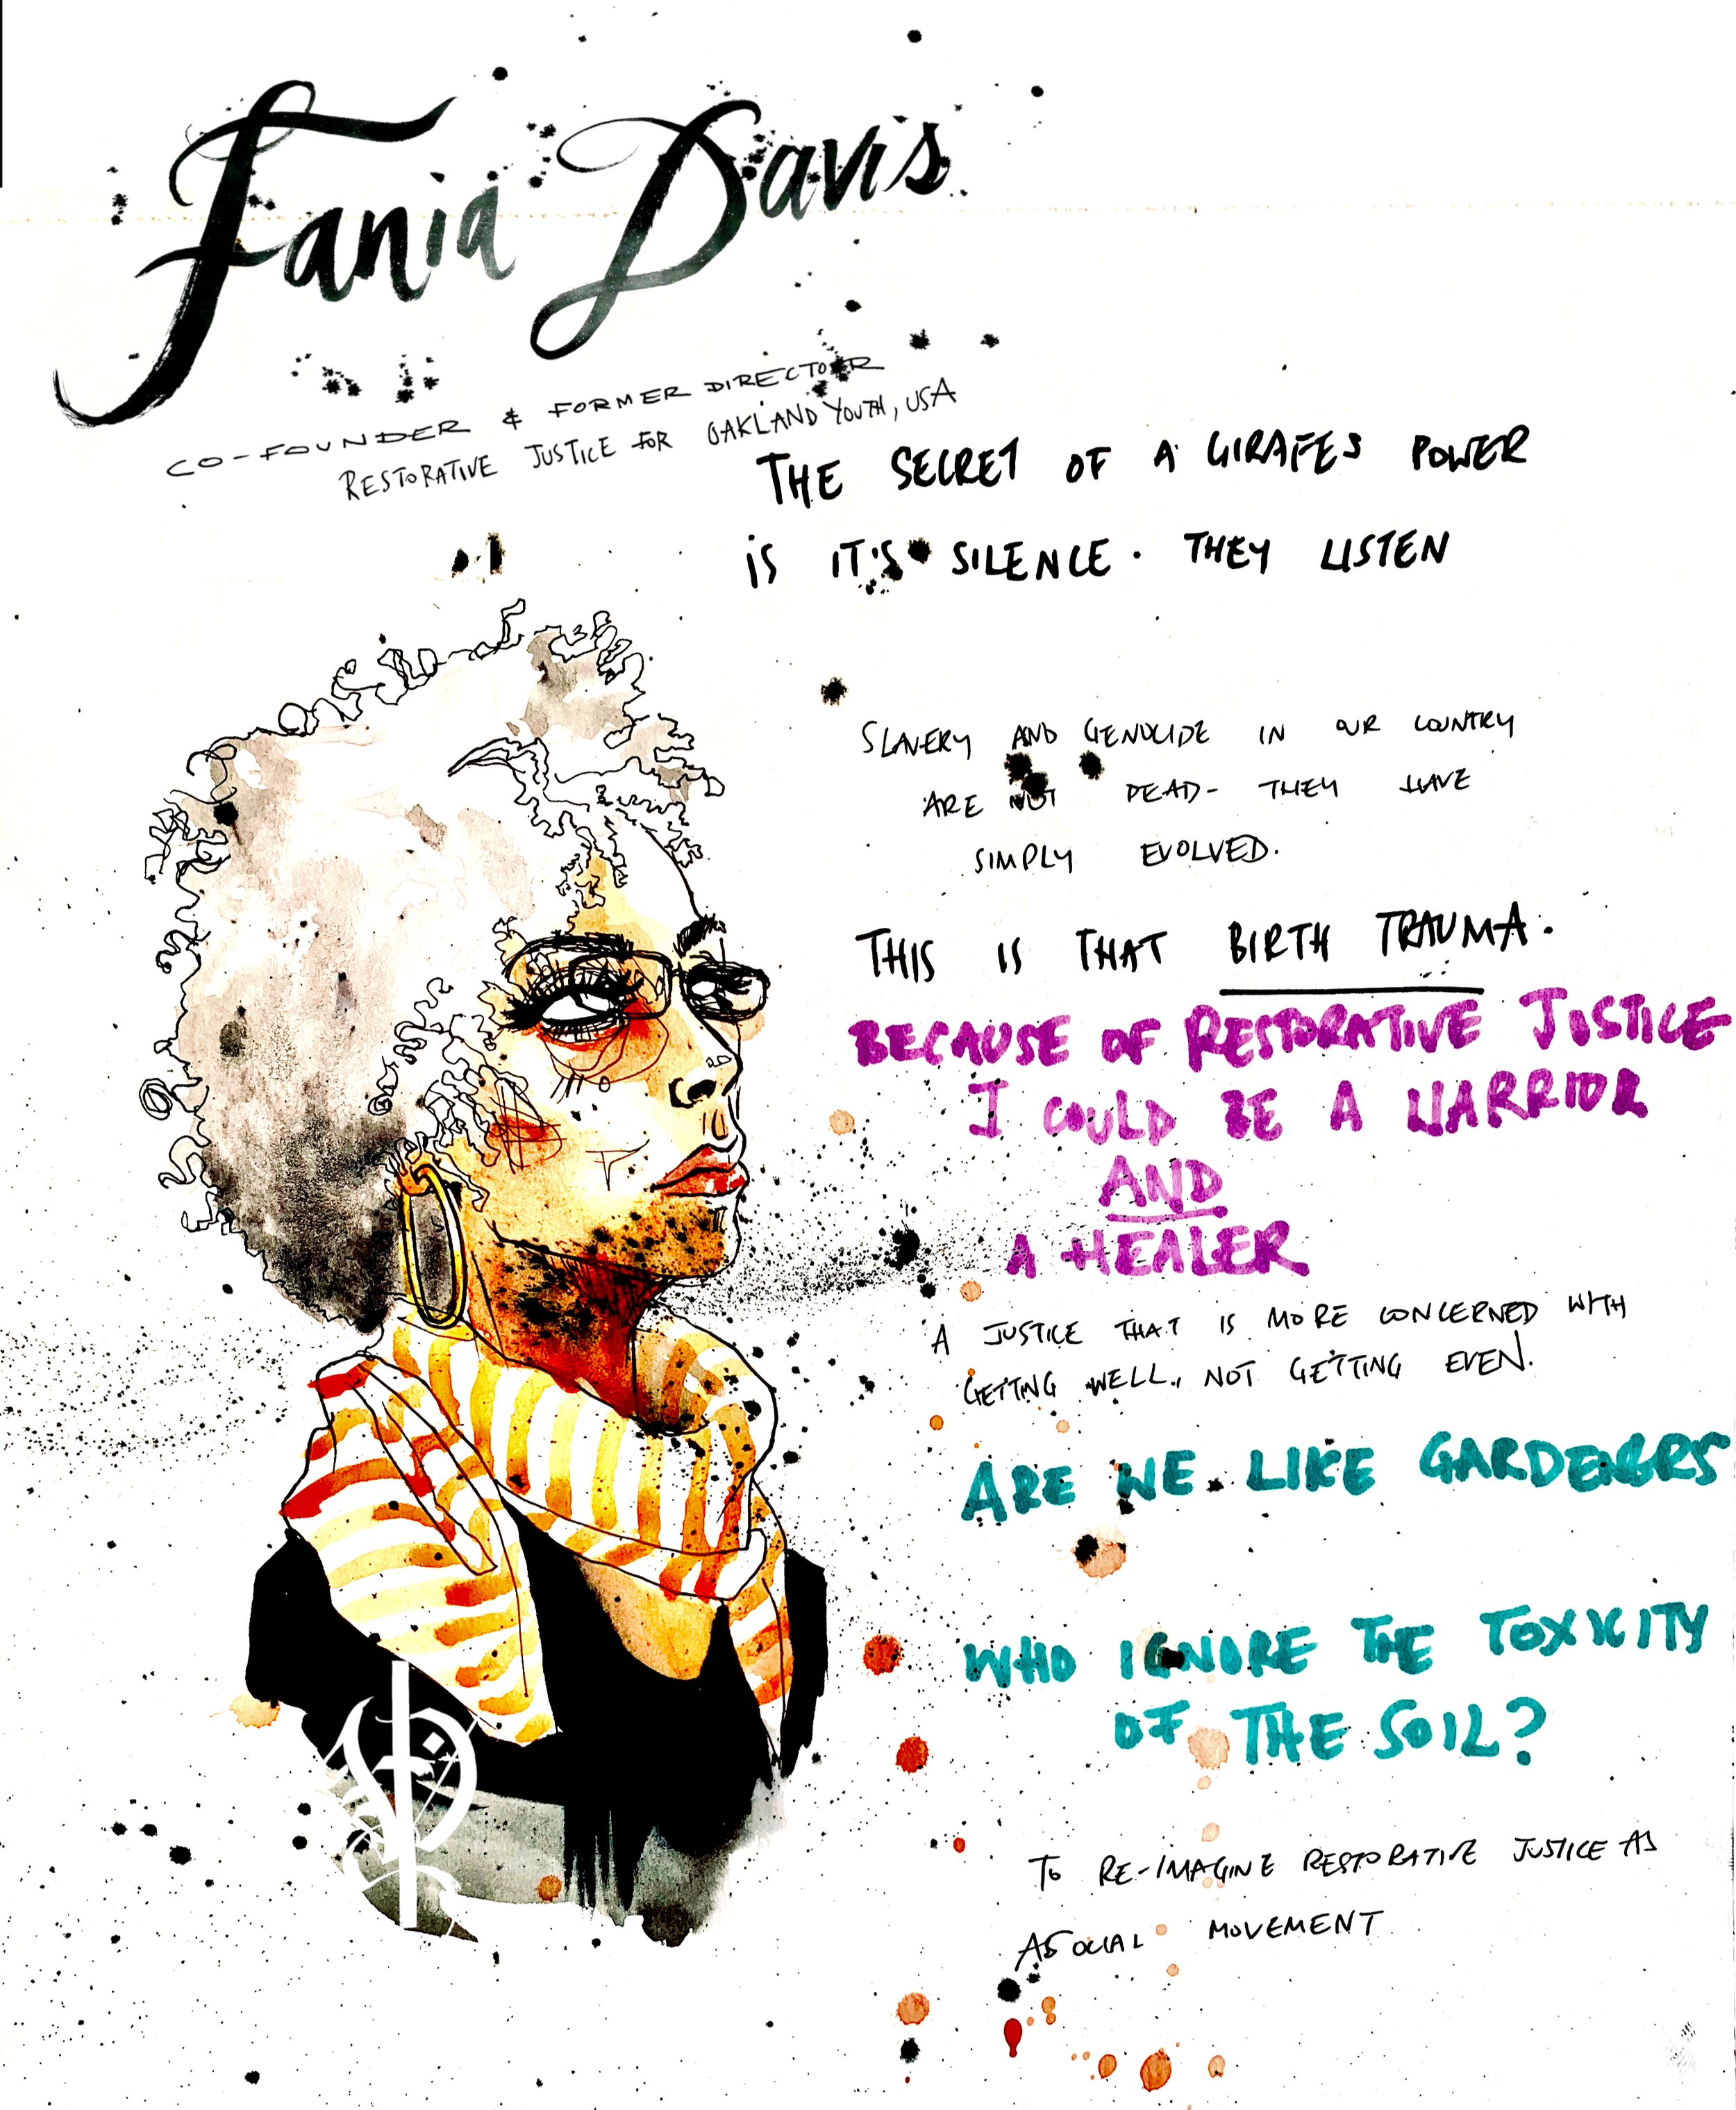 Fania Davis
CO-FOUNDER & FORMER DIRECTOR
RESTORATIVE JUSTICE FOR OAKLAND YOUTH, USA
THE SECRET OF A GIRAFES POWER
IS IT'S SILENCE. THEY LISTEN
SLAVERY AND GENOCIDE IN OUR COUNTRY
ARE NOT DEAD- THEY HAVE
SIMPLY EVOLVED.
THIS IS THAT BIRTH TRAUMA.
BECAUSE OF RESTORATIVE JUSTICE
I COULD BE A WARRIOR
AND
A HEALER
A JUSTICE THAT IS MORE CONCERNED WITH
GETTING WELL, NOT GETTING EVEN.
ARE WE LIKE GARDENERS
WHO IGNORE THE TOXICITY
OF THE SOIL?
TO RE-IMAGINE RESTORATIVE JUSTICE AS
A SOCIAL MOVEMENT